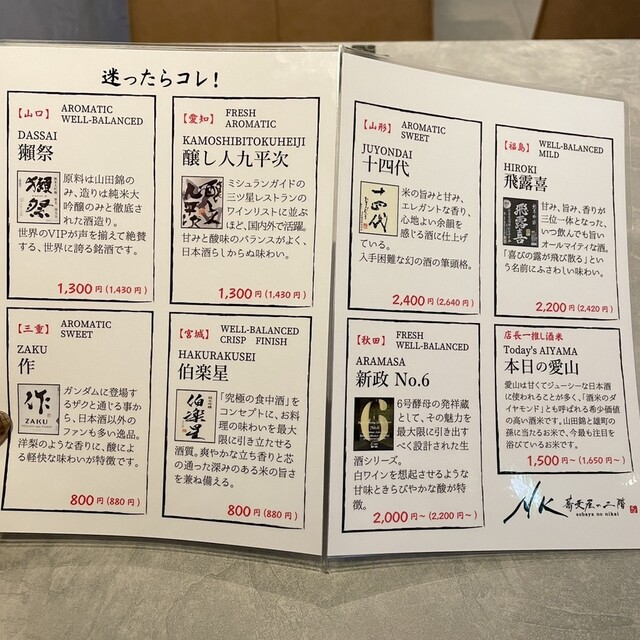 迷ったらコレ！
【山口】 AROMATIC
WELL-BALANCED
DASSAI
獺祭
獺祭
原料は山田錦の
み、造りは純米大
吟醸のみと徹底さ
れた酒造り。
世界のVIPが声を揃えて絶賛
する、世界に誇る銘酒です。
1,300円(1,430円)
【愛知】 FRESH
AROMATIC
KAMOSHIBITOKUHEIJI
醸し人九平次
ミシュランガイドの
三ツ星レストランの
ワインリストに並ぶ
ほど、国内外で活躍。
甘みと酸味のバランスがよく、
日本酒らしからぬ味わい。
1,300円(1,430円)
【三重】 AROMATIC
SWEET
ZAKU
作
作
ZAKU
ガンダムに登場す
るザクと通じる事か
ら、日本酒以外の
ファンも多い逸品。
洋梨のような香りに、酸によ
る軽快な味わいが特徴です。
800円(880円)
【宮城】 WELL-BALANCED
CRISP FINISH
HAKURAKUSEI
伯楽星
伯楽星
「究極の食中酒」を
コンセプトに、お料
理の味わいを最大
限に引き立たせる
酒質。爽やかな立ち香りと芯
の通った深みのある米の旨さ
を兼ね備える。
800円(880円)
【山形】 AROMATIC
SWEET
JUYONDAI
十四代
十四代
米の旨みと甘み、
エレガントな香り、
心地よい余韻を
感じる酒に仕上げ
ている。
入手困難な幻の酒の筆頭格。
2,400円(2,640円)
【福島】 WELL-BALANCED
MILD
HIROKI
飛露喜
飛露喜
甘み、旨み、香りが
三位一体となった、
いつ飲んでも旨い
オールマイティな酒。
「喜びの露が飛び散る」とい
う名前にふさわしい味わい。
2,200円(2,420円)
【秋田】 FRESH
WELL-BALANCED
ARAMASA
新政 No.6
6
6号酵母の発祥蔵
として、その魅力を
最大限に引き出すべ
く設計された生
酒シリーズ。
白ワインを想起させるような
甘味ときらびやかな酸が特
徴。
2,000円～(2,200円～)
店長一推し酒米
Today's AIYAMA
本日の愛山
愛山は甘くてジューシーな日本酒
に使われることが多く、「酒米のダ
イヤモンド」とも呼ばれる希少価値
の高い酒米です。山田錦と雄町の
孫に当たるお米で、今最も注目を
浴びているお米です。
1,500円～(1,650円～)
NK 蕎麦屋の二階
sobaya no nikai